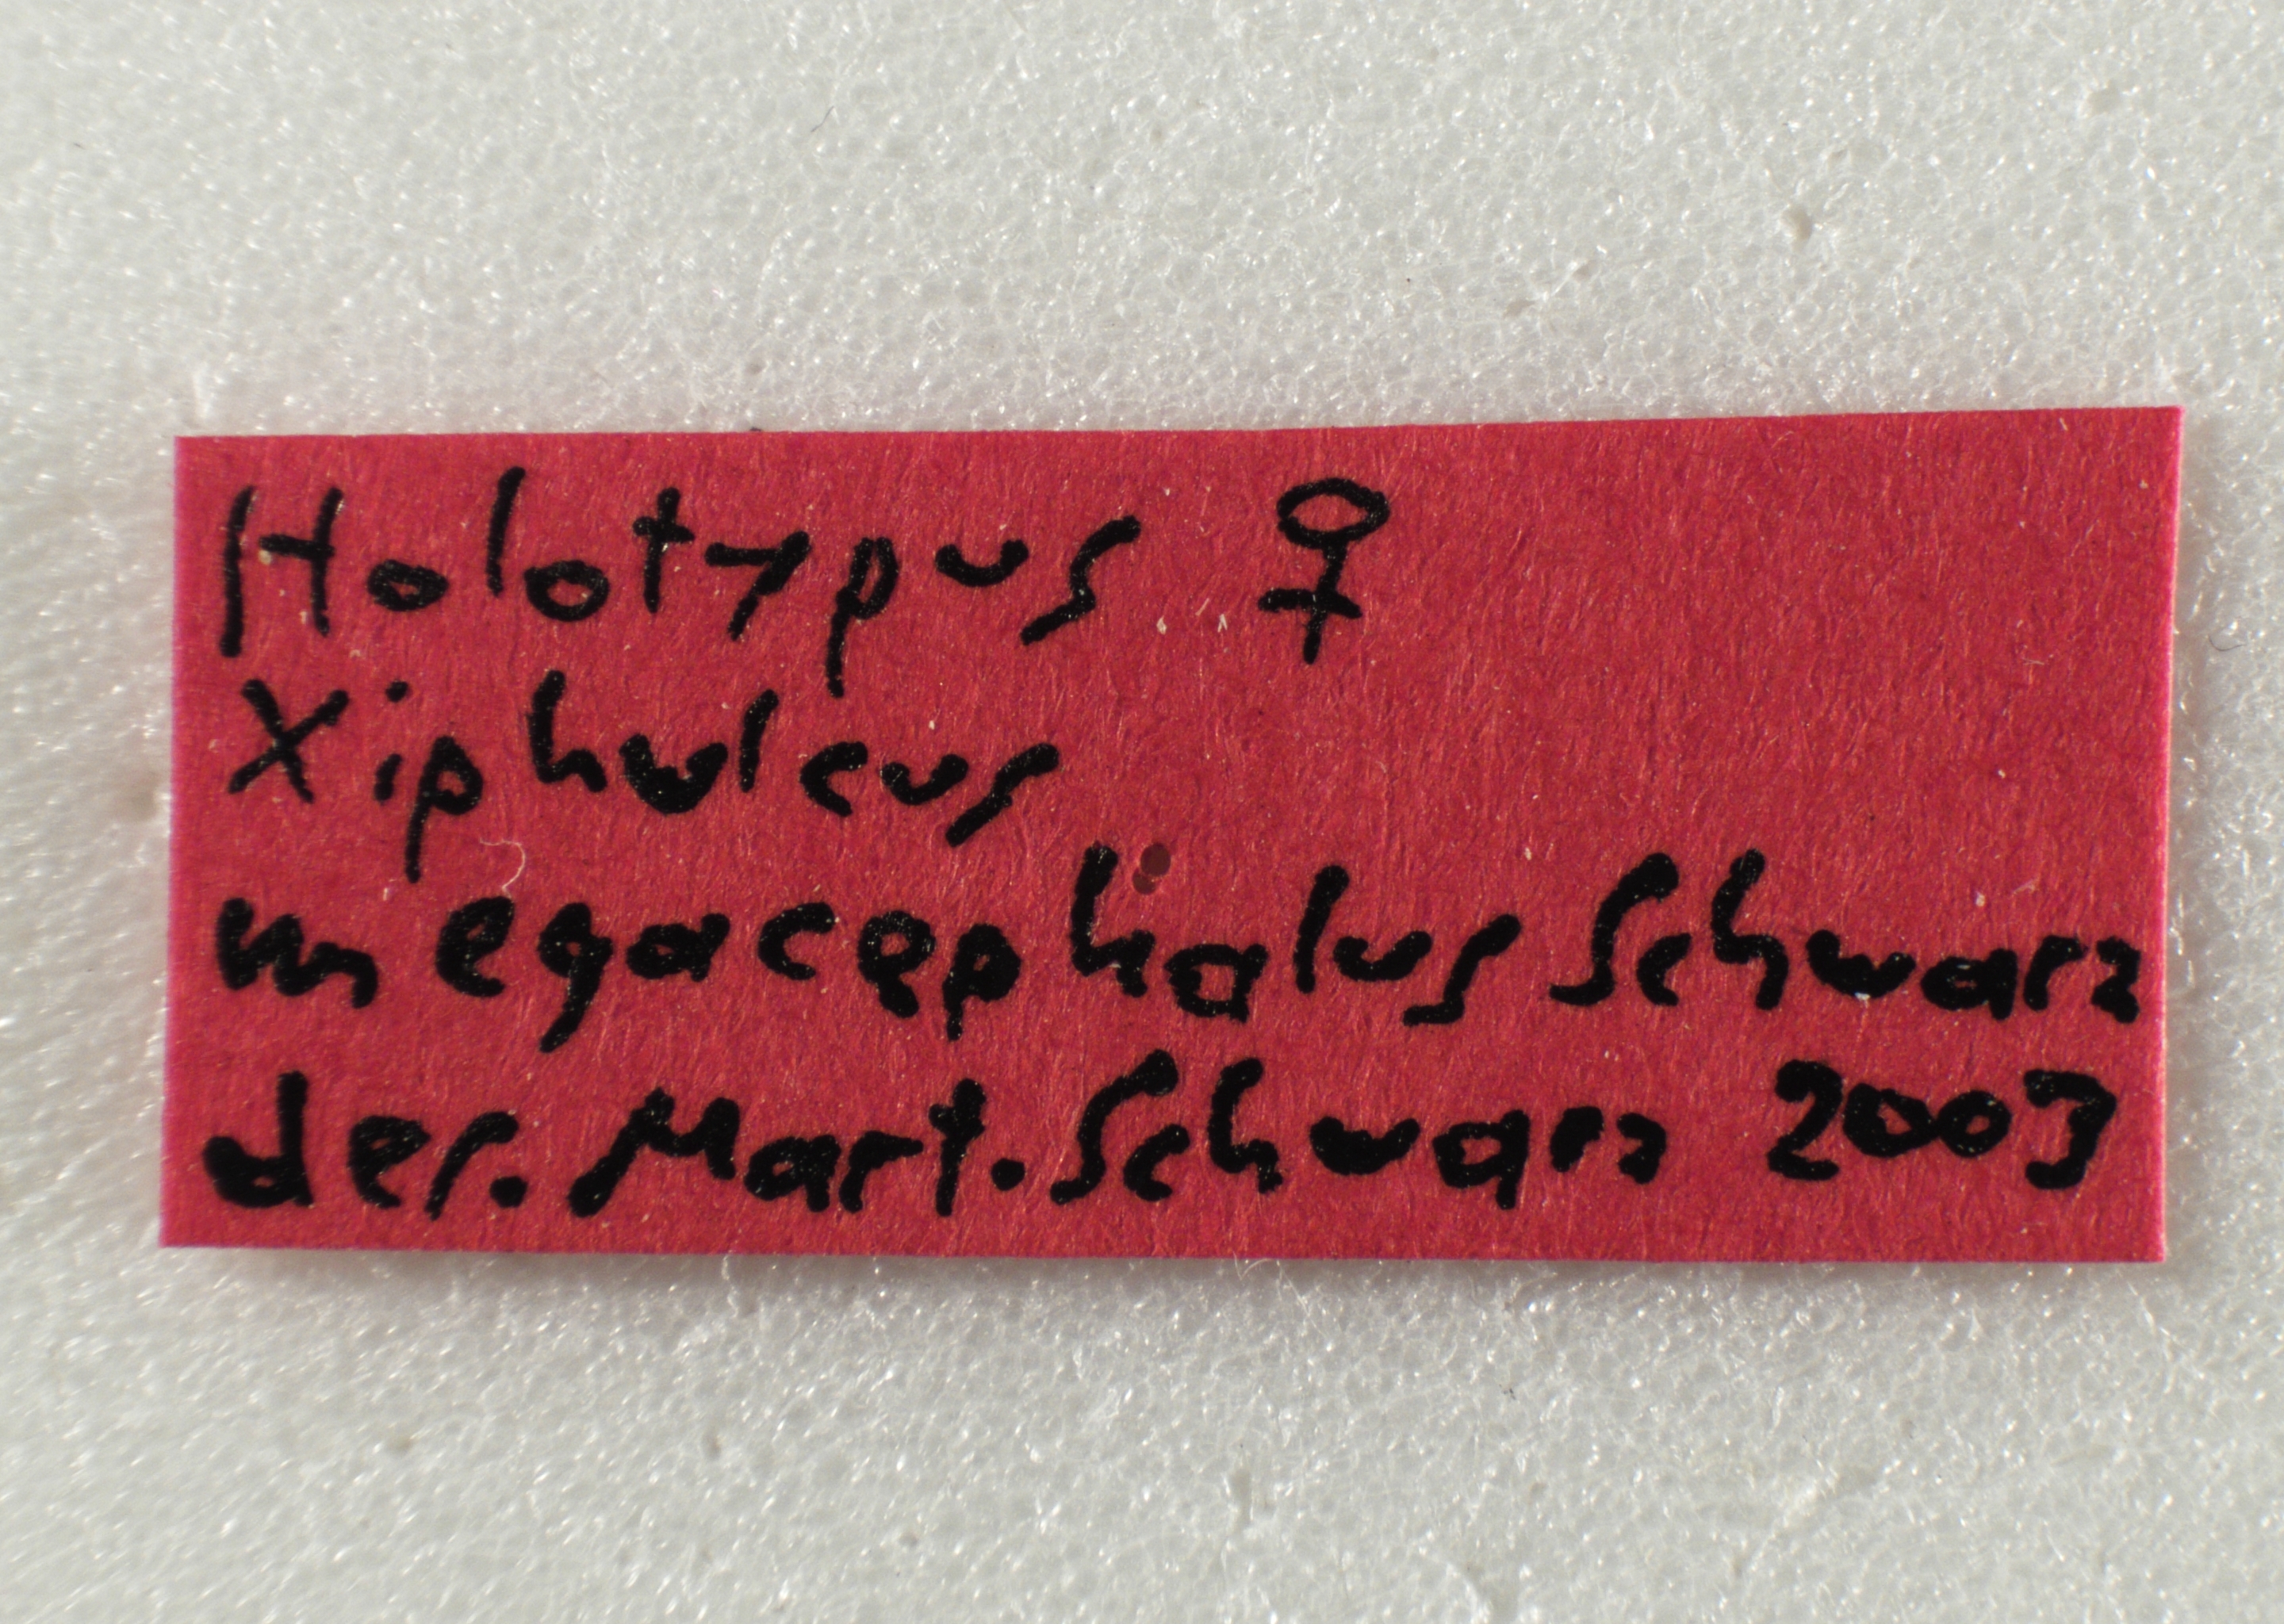 Holotypus ♀
Xiphulcus
megacephalus Schwarz
der. Mart. Schwarz 2003